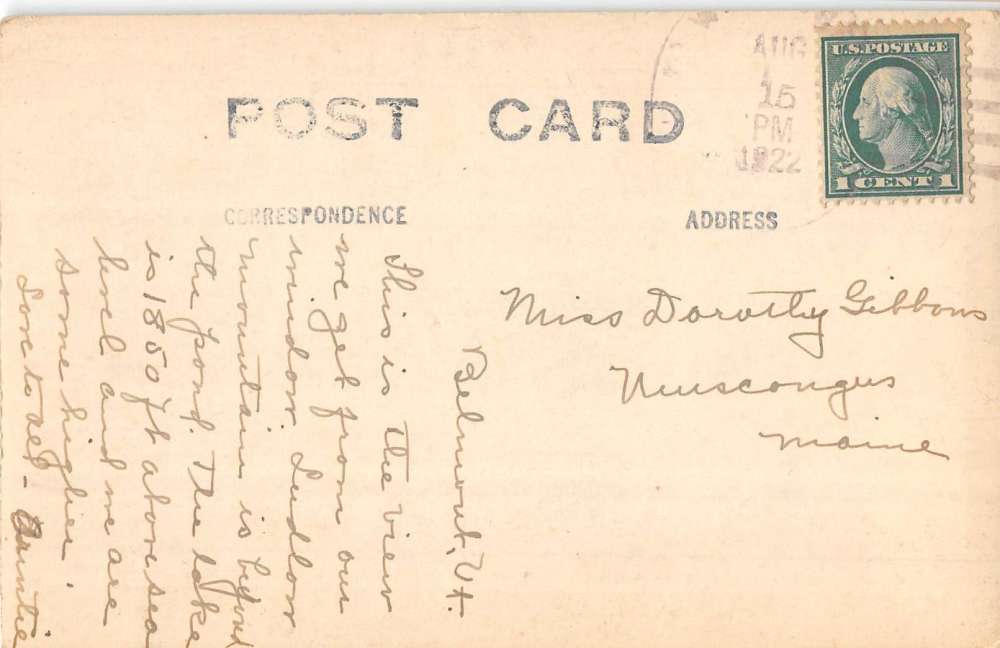 POST CARD
AUG
15
PM
1922
U.S. POSTAGE
1 CENT 1
CORRESPONDENCE
ADDRESS
Belmont, Vt.
This is the view
we get from our
window. Ludlow
mountain is beyond
the pond. The lake
is 1850 ft above sea
level and we are
some higher.
Love to all - Auntie
Miss Dorothy Gibbons
Muscongus
Maine